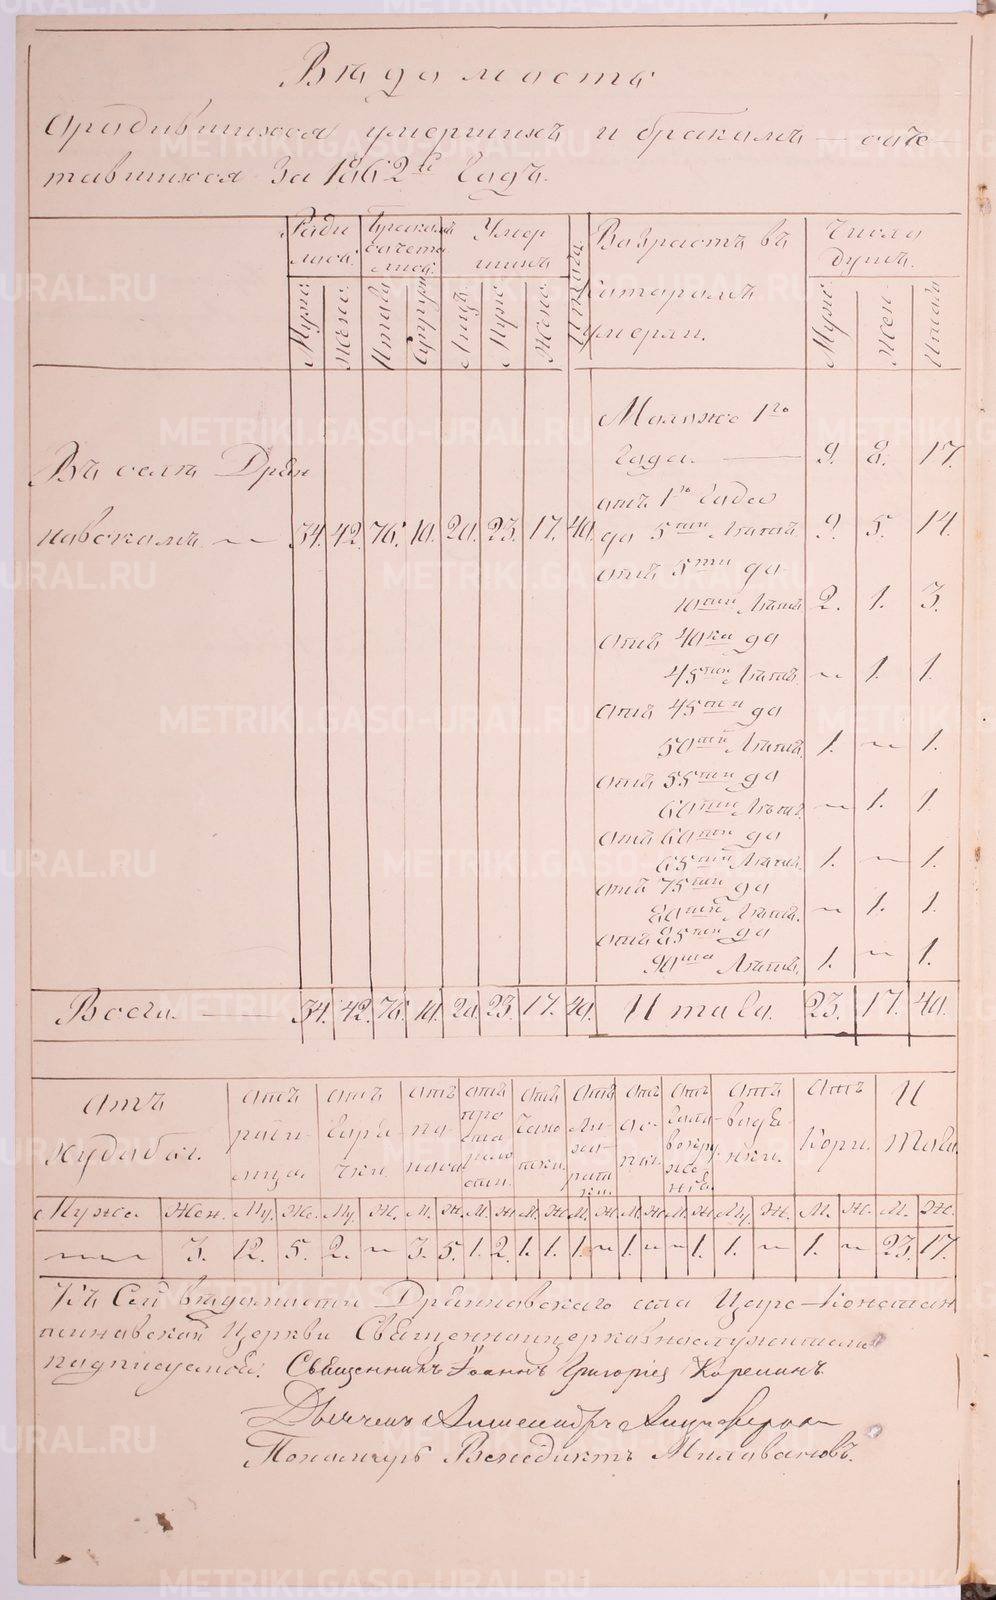 Вѣдомость
о родившихся умершихъ и бракомъ – соче-
тавшихся за 1862й Годъ.
Роди
лось
Бракомъ
сочета
лись
Умер
шихъ
Возрастъ въ
которомъ
умерли.
Число
душъ.
Муж.
Жен.
Итого
Супруж
Лицъ
Муж
Жен.
Муж
Жен.
Итого
Въ селѣ Дрян
новскомъ 34. 42. 76. 10. 20. 23. 17. 40.
Моложе 1го
Года. 9. 8. 17.
отъ 1го Года
до 5ти Лѣтъ 9. 5. 14.
отъ 5ти до
10ти Лѣтъ 2. 1. 3.
отъ 40ка до
45ти Лѣтъ. – 1. 1.
отъ 45ти до
50ти Лѣтъ. 1. – 1.
отъ 55ти до
60ти Лѣтъ. – 1. 1.
отъ 60ти до
65ти Лѣтъ. 1. – 1.
отъ 75ти до
80ти Лѣтъ. – 1. 1.
отъ 85ти до
90та Лѣтъ. 1. – 1.
Всего. 34. 42. 76. 10. 20. 23. 17. 40. Итого. 23. 17. 40.
отъ
худобы.
отъ
роди-
мца
отъ
горя-
чки.
отъ
по-
носа
отъ
отъ
чахо
тки.
отъ
отъ
ос-
пы.
отъ
отъ
водя-
нки.
отъ
Кори.
И
того.
Мужс. Жен. Му. Же. Му. Ж. М. Ж. М. Ж М. Ж М. Ж М Ж М. Ж. Му. Ж. М. Ж. М. Ж.
– 3. 12. 5. 2. – 3. 5. 1. 2. 1. 1. 1. – 1. – – 1. 1. – 1. – 23. 17.
Къ Сей вѣдомости Дрянновскаго села Царе-Констан
тиновской Церкви Священноицерковнослужители
подписуемся. Священникъ Іоаннъ Григоріев Корелинъ
Дьячекъ Александръ
Пономарь Венедиктъ Миловановъ.
METRIKI.GASO-URAL.RU